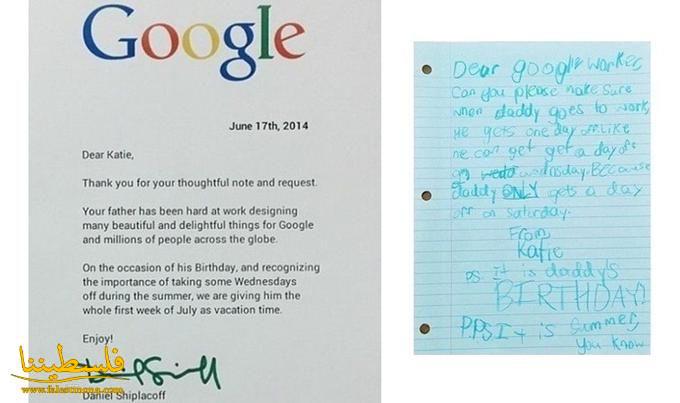 Google
June 17th, 2014
Dear Katie,
Thank you for your thoughtful note and request.
Your father has been hard at work designing
many beautiful and delightful things for Google
and millions of people across the globe.
On the occasion of his Birthday, and recognizing
the importance of taking some Wednesdays
off during the summer, we are giving him the
whole first week of July as vacation time.
Enjoy!
Daniel Shiplacoff
فلسطيننا
www.falestinona.com
Dear google worker,
Can you please make sure
when daddy goes to work,
He gets one day off. Like
he can get get a day off
on wednesday. BEcause
daddy ONLY gets a day
off on Saturday.
From,
Katie
P.S. It is daddy's
BIRTHDAY!
P.P.S It is summer,
you know